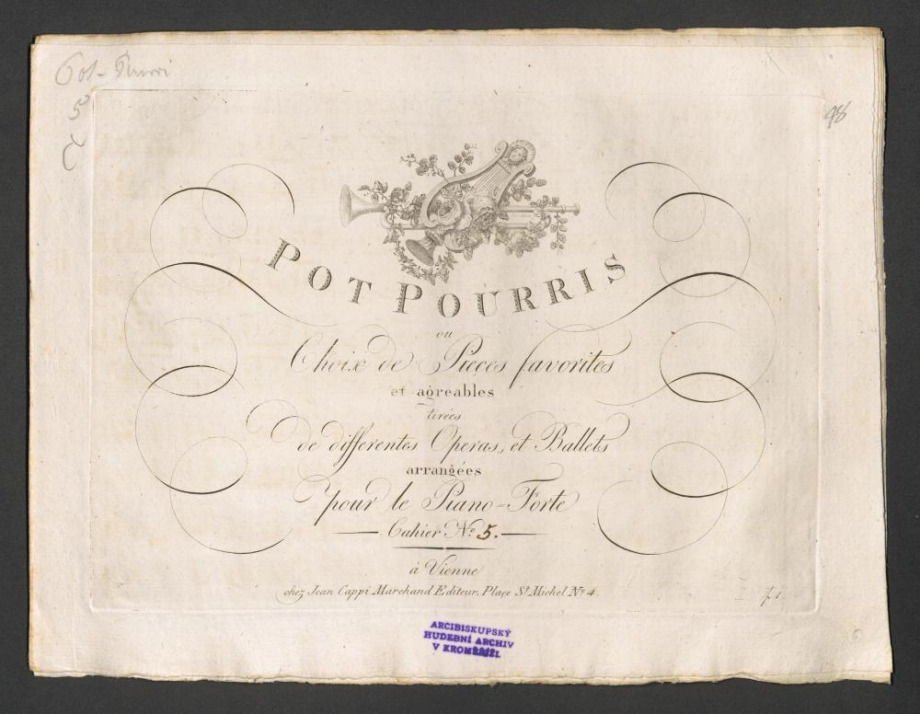 Pot-Pourri
5
98
POT POURRIS
ou
Choix de Pieces favorites
et agreables
tirées
de differentes Operas, et Ballets
arrangées
pour le Piano-Forte
Cahier No 5.
à Vienne
chez Jean Cappi Marchand Editeur, Place St Michel No 4.
ARCIBISKUPSKÝ
HUDEBNÍ ARCHIV
V KROMĚŘÍŽI